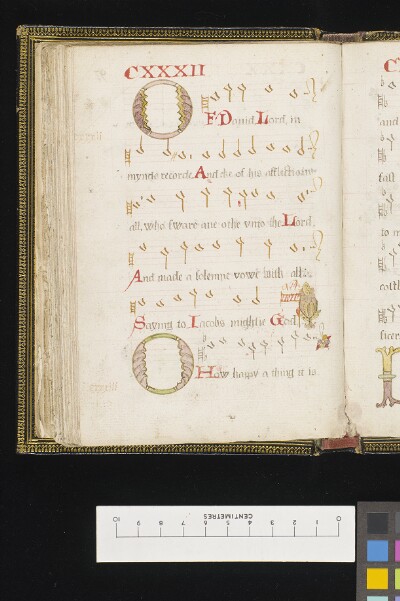 CXXXII
OF Dauid Lord, in
mynde recorde, And
all, who sware une othe unto the Lord,
And made a solemne vowe
Saying to Iacobs mightie God
O How happy a thing it is
C
and
fast
to m
10 9 8 7 6 5 4 3 2 1 0
CENTIMETRES